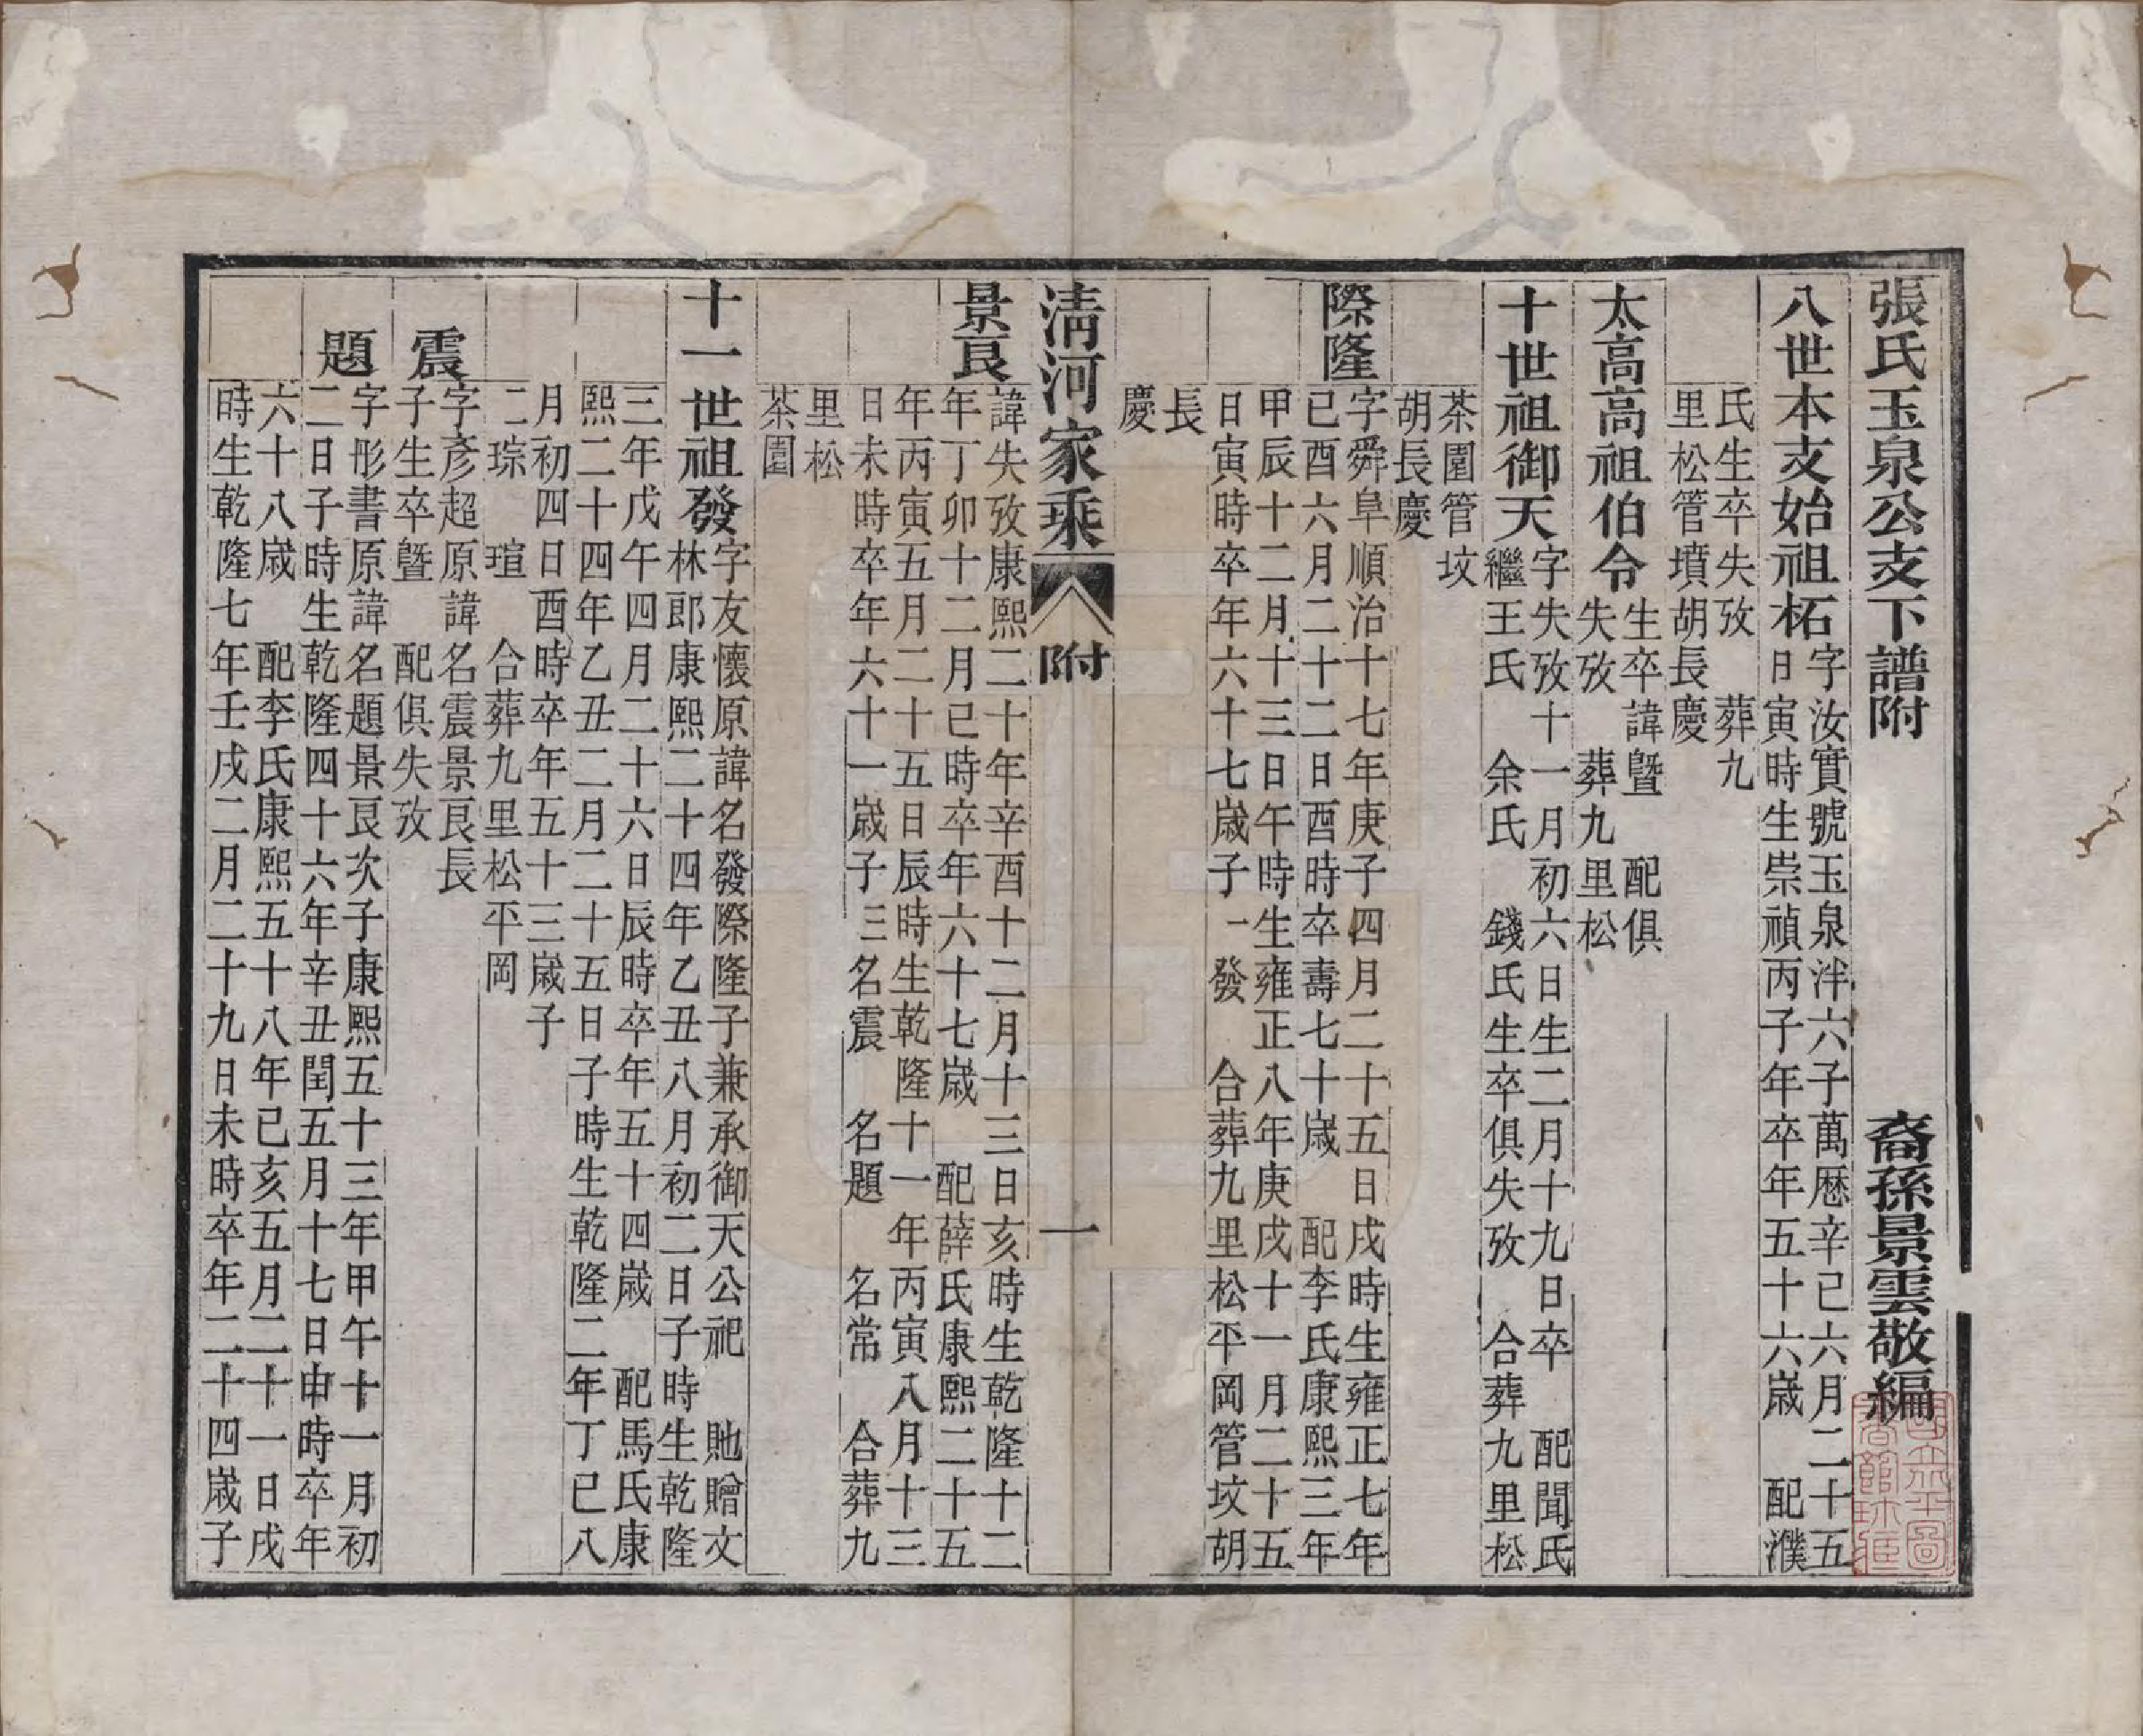 張氏玉泉公支下譜附　裔孫景雲敬編
八世本支始祖柘
字汝實號玉泉泮六子萬厯辛巳六月二十五
日寅時生崇禎丙子年卒年五十六歲　配濮
氏生卒失攷　葬九
里松管墳胡長慶
太高高祖伯令
生卒諱曁　配俱
失攷　葬九里松
十世祖御天
字失攷十一月初六日生二月十九日卒　配聞氏
繼王氏　余氏　錢氏生卒俱失攷　合葬九里松
茶園管坟
胡長慶
際隆
字舜阜順治十七年庚子四月二十五日戌時生雍正七年
己酉六月二十二日酉時卒壽七十歲　配李氏康熙三年
甲辰十二月十三日午時生雍正八年庚戌十一月二十五
日寅時卒年六十七歲子一發　合葬九里松平岡管坟胡
長
慶
淸河家乘　附　一
景㫰
諱失攷康熙二十年辛酉十二月十三日亥時生乾隆十二
年丁卯十二月己時卒年六十七歲　配薛氏康熙二十五
年丙寅五月二十五日辰時生乾隆十一年丙寅八月十三
日未時卒年六十一歲子三名震　名題　名常　合葬九
里松
茶園
十一世祖發
字友懷原諱名發際隆子兼承御天公祀　貤贈文
林郎康熙二十四年乙丑八月初二日子時生乾隆
三年戊午四月二十六日辰時卒年五十四歲　配馬氏康
熙二十四年乙丑二月二十五日子時生乾隆二年丁巳八
月初四日酉時卒年五十三歲子
二琮　瑄　合葬九里松平岡
震
字彥超原諱名震景㫰長
子生卒曁　配俱失攷
題
字彤書原諱名題景㫰次子康熙五十三年甲午十一月初
二日子時生乾隆四十六年辛丑閏五月十七日申時卒年
六十八歲　配李氏康熙五十八年己亥五月二十一日戌
時生乾隆七年壬戌二月二十九日未時卒年二十四歲子